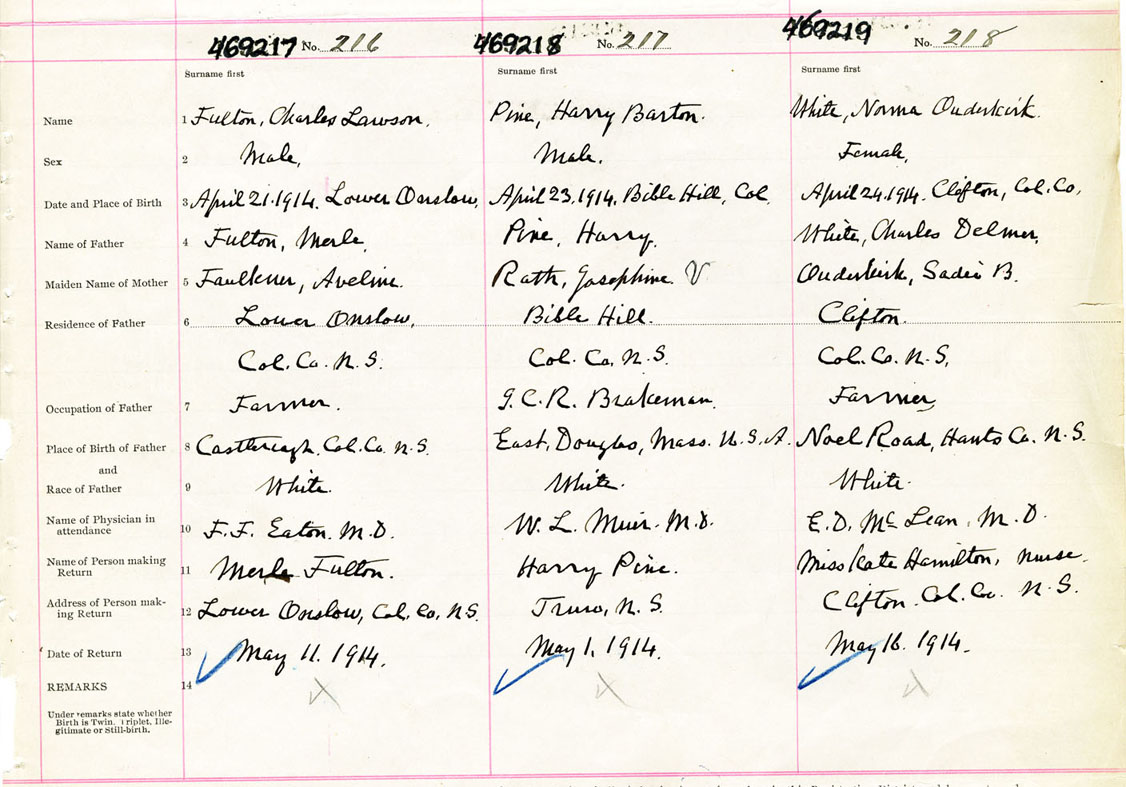 469217 No. 216 469218 No. 217 469219 No. 218
Surname first Surname first Surname first
Name 1 Fulton, Charles Lawson. Pine, Harry Barton. White, Norma Ouderkirk.
Sex 2 Male, Male. Female,
Date and Place of Birth 3 April 21. 1914. Lower Onslow, April 23, 1914, Bible Hill, Col. April 24. 1914. Clifton, Col. Co,
Name of Father 4 Fulton, Merle, Pine, Harry. White, Charles Delmer,
Maiden Name of Mother 5 Faulkner, Aveline. Rath, Josephine V Ouderkirk, Sadie B.
Residence of Father 6 Lower Onslow, Bible Hill. Clifton.
Col. Co. N.S. Col. Co, N.S. Col. Co. N.S,
Occupation of Father 7 Farmer. I.C.R. Brakeman. Farmer,
Place of Birth of Father 8 Castlereagh, Col. Co. N.S. East, Douglas, Mass. U.S.A. Noel Road, Hants Co. N.S.
and
Race of Father 9 White. White. White.
Name of Physician in
attendance 10 F.F. Eaton. M.D. W. L. Muir. M.D. E. D. McLean, M.D.
Name of Person making
Return 11 Merle Fulton. Harry Pine. Miss Kate Hamilton, nurse.
Address of Person mak-
ing Return 12 Lower Onslow, Col. Co, N.S. Truro, N.S. Clifton. Col. Co. N.S.
Date of Return 13 May 11. 1914. May 1, 1914. May 16. 1914.
REMARKS 14
Under remarks state whether
Birth is Twin, Triplet, Ille-
gitimate or Still-birth.